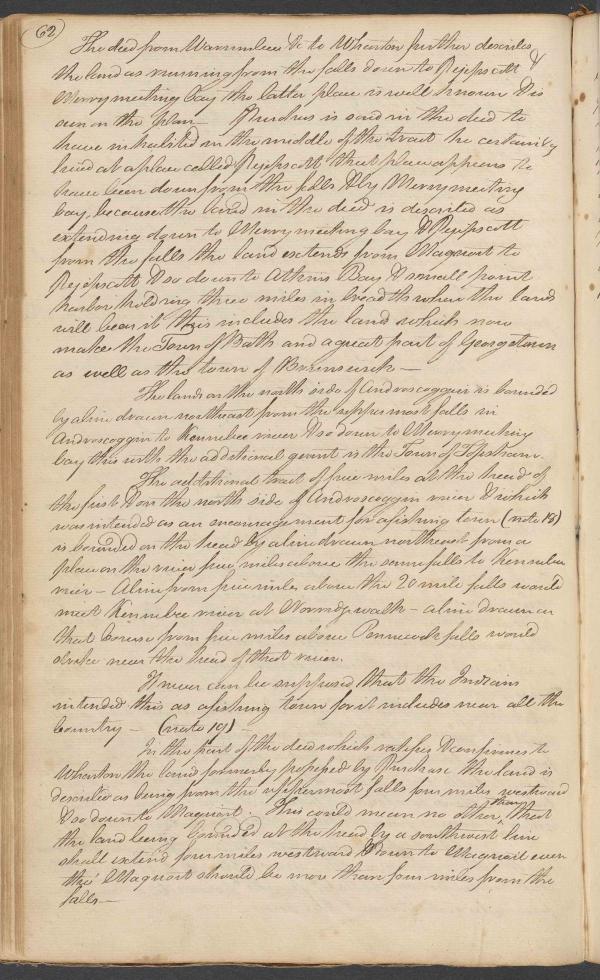 62
The deed from Warrumbee &c to Wharton further describes
the land as running from the falls down to Pejepscott &
Merrymeeting bay the latter place is well known & is
seen on the Plan — Purchas is said in the deed to
have inhabited in the middle of the tract he certainly
lived at a place called Pejepscott that place appears to
have been down from the falls & by Merrymeeting
bay, because the land in the deed is described as
extending down to Merrymeeting bay & Pejepscott
from the falls the land extends from Maquoit to
Pejepscott & so down to Atkins Bay & small point
harbor holding three miles in breadth where the land
will bear it this includes the land which now
make the Town of Bath and a great part of Georgetown
as well as the town of Brunswick —
The lands on the north side of Androscoggin is bounded
by a line drawn northeast from the uppermost falls in
Androscoggin to Kennebec river & so down to Merrymeeting
bay this with the additional grant is the Town of Topsham.
The additional tract of five miles at the head of
the first & on the north side of Androscoggin river & which
was intended as an encouragement for a fishing town (note 18)
is bounded on the head by a line drawn northeast from a
place on the river five miles above the same falls to Kennebec
river — A line from five miles above the 20 mile falls would
meet Kennebec river at Norridgewalk — a line drawn on
that course from five miles above Pennecook falls would
strike near the head of that river.
It never can be supposed that the Indians
intended this as a fishing town for it includes near all the
Country — (note 19) —
In the part of the deed which ratifies & confirms to
Wharton the lands formerly possessed by Purchase the land is
described as being from the uppermost falls four miles westward
& so down to Maquoit. This could mean no other than that
the land being bounded at the head by a southwest line
shall extend four miles westward & down to Maquoit even
tho' Maquoit should be more than four miles from the
falls —